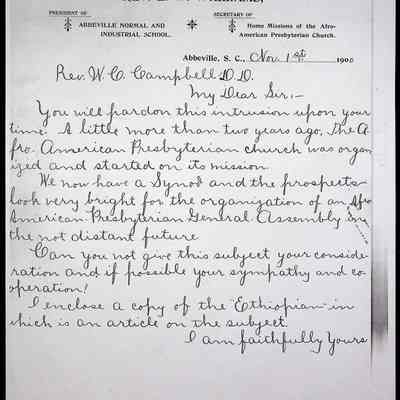 PRESIDENT OF
SECRETARY OF
ABBEVILLE NORMAL AND
INDUSTRIAL SCHOOL.
Home Missions of the Afro-
American Presbyterian Church.
Abbeville, S. C., Nov. 1st 1900
Rev. W. C. Campbell D.D.
My Dear Sir:—
You will pardon this intrusion upon your
time. A little more than two years ago, The A
fro-American Presbyterian church was organ
ized and started on its mission.
We now have a Synod and the prospects
look very bright for the organization of an Afro
American Presbyterian General Assembly in
the not distant future
Can you not give this subject your conside-
ration and if possible your sympathy and co-
operation!
I enclose a copy of the "Ethiopian" in
which is an article on the subject.
I am faithfully Yours